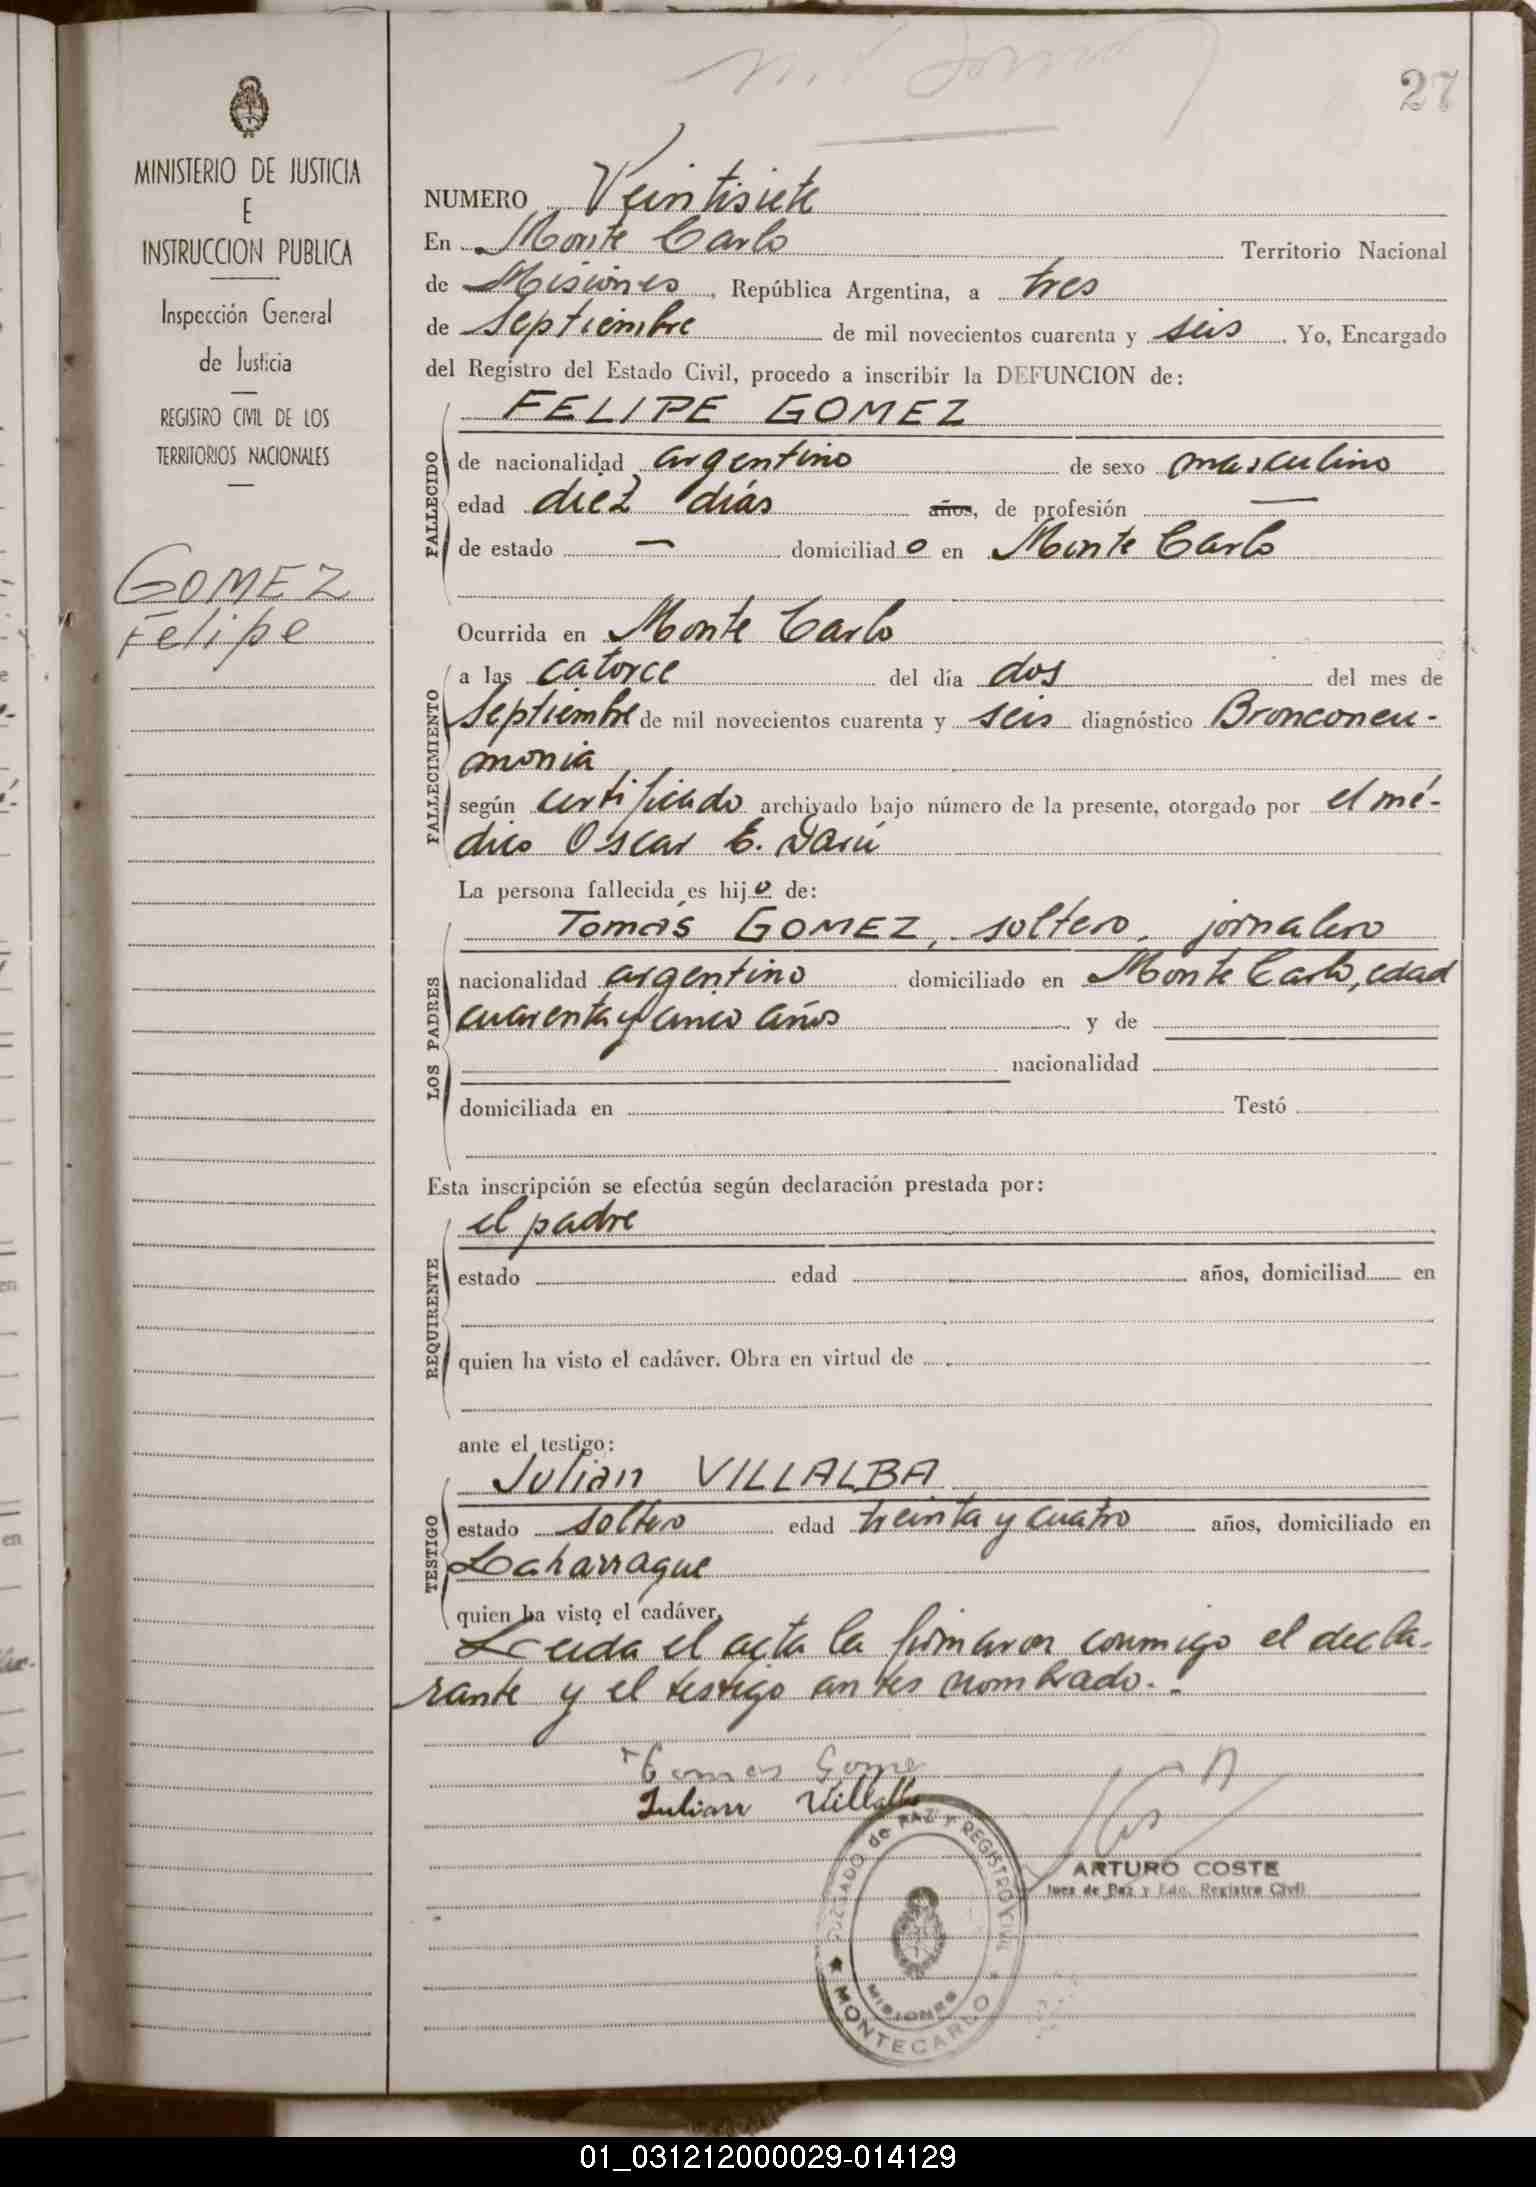 27
MINISTERIO DE JUSTICIA
E
INSTRUCCION PUBLICA
Inspección General
de Justicia
REGISTRO CIVIL DE LOS
TERRITORIOS NACIONALES
GOMEZ
Felipe
NUMERO Veintisiete
En Monte Carlo Territorio Nacional
de Misiones, República Argentina, a tres
de Septiembre de mil novecientos cuarenta y seis. Yo, Encargado
del Registro del Estado Civil, procedo a inscribir la DEFUNCION de:
FELIPE GOMEZ
FALLECIDO
de nacionalidad argentino de sexo masculino
edad diez días años, de profesión —
de estado — domiciliado en Monte Carlo
Ocurrida en Monte Carlo
FALLECIMIENTO
a las catorce del día dos del mes de
Septiembre de mil novecientos cuarenta y seis diagnóstico Bronconeu-
monia
según certificado archivado bajo número de la presente, otorgado por el mé-
dico Oscar E. Darú
La persona fallecida es hijo de:
LOS PADRES
Tomás GOMEZ, soltero, jornalero
nacionalidad argentino domiciliado en Monte Carlo, edad
cuarenta y cinco años y de
nacionalidad
domiciliada en Testó
Esta inscripción se efectúa según declaración prestada por:
REQUIRENTE
el padre
estado edad años, domiciliad en
quien ha visto el cadáver. Obra en virtud de
ante el testigo:
TESTIGO
Julian VILLALBA
estado soltero edad treinta y cuatro años, domiciliado en
Laharrague
quien ha visto el cadáver.
Leida el acta la firmaron conmigo el decla-
rante y el testigo antes nombrado.
Tomas Gome
Julian Villalba
JUZGADO de PAZ Y REGISTRO CIVIL
MISIONES
MONTECARLO
ARTURO COSTE
Juez de Paz y Enc. Registro Civil
01_031212000029-014129